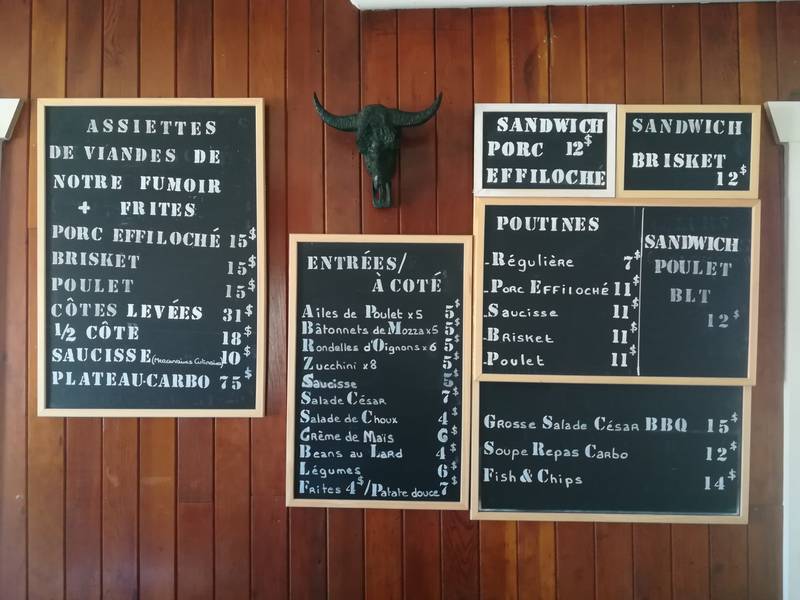 ASSIETTES
DE VIANDES DE
NOTRE FUMOIR
+ FRITES
PORC EFFILOCHÉ 15$
BRISKET 15$
POULET 15$
CÔTES LEVÉES 31$
1/2 CÔTE 18$
SAUCISSE (Mercenaires Culinaires) 10$
PLATEAU-CARBO 75$
ENTRÉES/
À COTÉ
Ailes de Poulet x5 5$
Bâtonnets de Mozza x5 5$
Rondelles d'Oignons x6 5$
Zucchini x8 5$
Saucisse 5$
Salade César 7$
Salade de Choux 4$
Crème de Maïs 6$
Beans au Lard 4$
Légumes 6$
Frites 4$/Patate douce 7$
SANDWICH
PORC 12$
EFFILOCHÉ
SANDWICH
BRISKET
12$
POUTINES
-Régulière 7$
-Porc Effiloché 11$
-Saucisse 11$
-Brisket 11$
-Poulet 11$
SANDWICH
POULET
BLT
12$
Grosse Salade César BBQ 15$
Soupe Repas Carbo 12$
Fish & Chips 14$